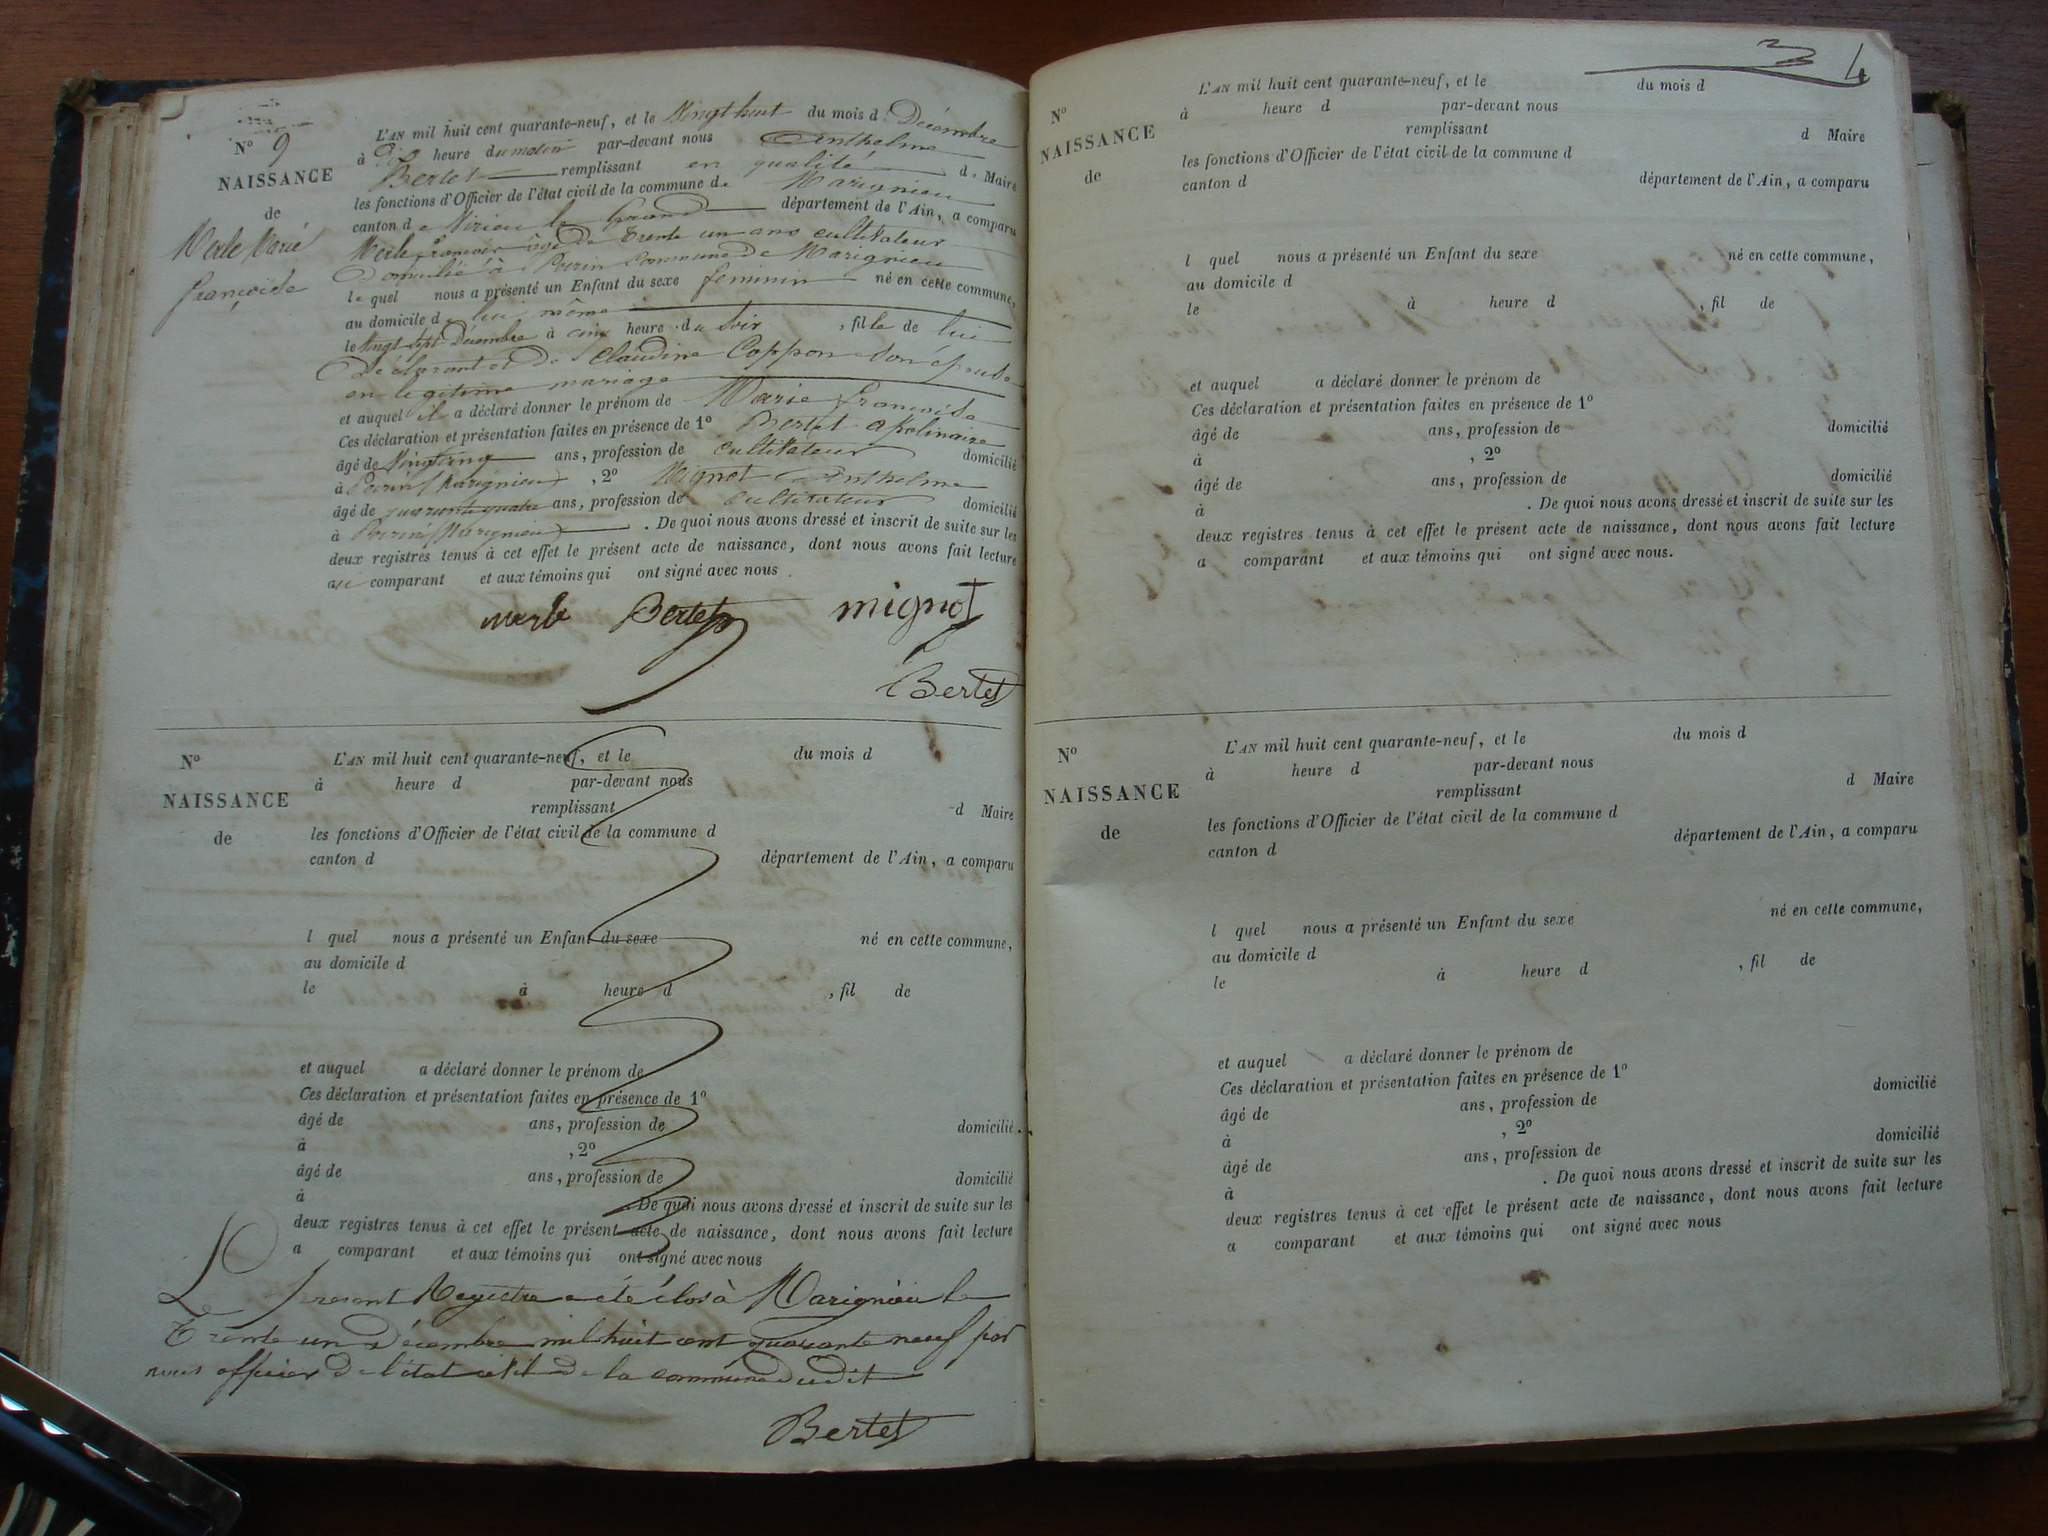 N° 9
NAISSANCE
de
Merle Marie
françoise
L'AN mil huit cent quarante-neuf, et le Vingt huit du mois d Décembre
à dix heure du matin par-devant nous Anthelme
Bertet remplissant en qualité de Maire
les fonctions d'Officier de l'état civil de la commune de Marignieu
canton de Virieu le Grand département de l'Ain, a comparu
Merle françois âgé de Trente un ans cultivateur
Domicilié à Poirin Commune de Marignieu
le quel nous a présenté un Enfant du sexe feminin né en cette commune,
au domicile de lui même
le Vingt sept Décembre à cinq heure du Soir , fille de lui
Déclarant et de Claudine Coppon Son épouse
en legitime mariage
et auquel il a déclaré donner le prénom de Marie françoise
Ces déclaration et présentation faites en présence de 1° Bertet apolinaire
âgé de Vingt cinq ans, profession de cultivateur domicilié
à Poirin (Marignieu) , 2° Mignot Anthelme
âgé de quarante quatre ans, profession de Cultivateur domicilié
à Poirin (Marignieu) . De quoi nous avons dressé et inscrit de suite sur les
deux registres tenus à cet effet le présent acte de naissance, dont nous avons fait lecture
au comparant et aux témoins qui ont signé avec nous
merle Bertet mignot
Bertet
N°
NAISSANCE
de
L'AN mil huit cent quarante-neuf, et le du mois d
à heure d par-devant nous
remplissant d Maire
les fonctions d'Officier de l'état civil de la commune d
canton d département de l'Ain, a comparu
l quel nous a présenté un Enfant du sexe né en cette commune,
au domicile d
le à heure d , fil de
et auquel a déclaré donner le prénom de
Ces déclaration et présentation faites en présence de 1°
âgé de ans, profession de domicilié
à , 2°
âgé de ans, profession de domicilié
à . De quoi nous avons dressé et inscrit de suite sur les
deux registres tenus à cet effet le présent acte de naissance, dont nous avons fait lecture
a comparant et aux témoins qui ont signé avec nous
Le present Registre a été clos à Marignieu le
Trente un Décembre mil huit cent quarante neuf par
nous officier de l'état civil de la commune dudit
Bertet
4
N°
NAISSANCE
de
L'AN mil huit cent quarante-neuf, et le du mois d
à heure d par-devant nous
remplissant d Maire
les fonctions d'Officier de l'état civil de la commune d
canton d département de l'Ain, a comparu
l quel nous a présenté un Enfant du sexe né en cette commune,
au domicile d
le à heure d , fil de
et auquel a déclaré donner le prénom de
Ces déclaration et présentation faites en présence de 1°
âgé de ans, profession de domicilié
à , 2°
âgé de ans, profession de domicilié
à . De quoi nous avons dressé et inscrit de suite sur les
deux registres tenus à cet effet le présent acte de naissance, dont nous avons fait lecture
a comparant et aux témoins qui ont signé avec nous.
N°
NAISSANCE
de
L'AN mil huit cent quarante-neuf, et le du mois d
à heure d par-devant nous
remplissant d Maire
les fonctions d'Officier de l'état civil de la commune d
canton d département de l'Ain, a comparu
l quel nous a présenté un Enfant du sexe né en cette commune,
au domicile d
le à heure d , fil de
et auquel a déclaré donner le prénom de
Ces déclaration et présentation faites en présence de 1°
âgé de ans, profession de domicilié
à , 2°
âgé de ans, profession de domicilié
à . De quoi nous avons dressé et inscrit de suite sur les
deux registres tenus à cet effet le présent acte de naissance, dont nous avons fait lecture
a comparant et aux témoins qui ont signé avec nous